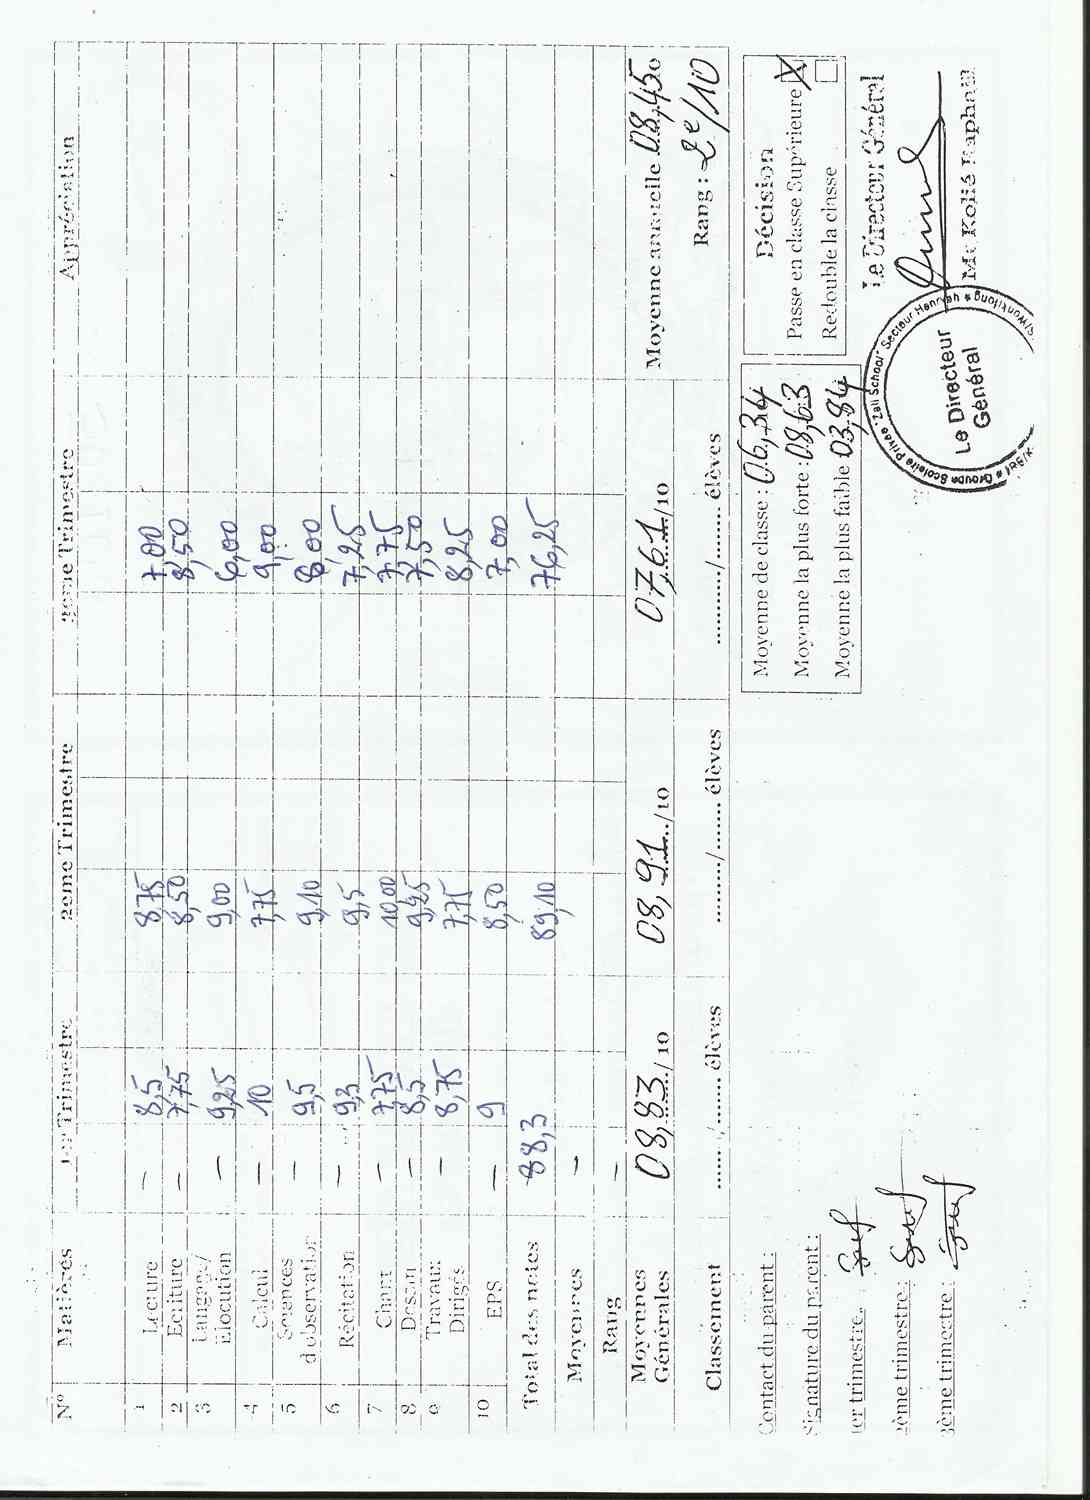 N° Matières 1er Trimestre 2ème Trimestre 3ème Trimestre Appréciation
1 Lecture – 8,5 8,75 7,00
2 Ecriture – 7,75 8,50 8,50
3 Langage/
Elocution – 9,25 9,00 6,00
4 Calcul – 10 7,75 9,00
5 Sciences
d'observation – 9,5 9,10 8,00
6 Récitation – 9,3 9,5 7,25
7 Chant – 7,75 10,00 7,75
8 Dessin – 8,5 9,25 7,50
9 Travaux
Dirigés – 8,75 7,75 8,25
10 EPS – 9 8,50 7,00
Total des notes 88,3 89,10 76,25
Moyennes –
Rang –
Moyennes
Générales 08,83/10 08,91/10 07,61/10 Moyenne annuelle 08,45
Rang : 2e/10
Classement ......./....... élèves ......../....... élèves ........./........ élèves
Contact du parent :
Signature du parent :
1er trimestre
2ème trimestre :
3ème trimestre :
Moyenne de classe : 06,34
Moyenne la plus forte : 08,63
Moyenne la plus faible 03,84
Décision
Passe en classe Supérieure X
Redouble la classe
Le Directeur Général
Mr Kolié Raphaël
Groupe Scolaire Privée "Zali School" Secteur
Le Directeur
Général